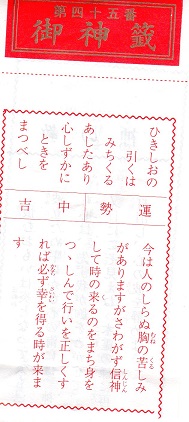 第四十五番
御神籤
ひきしおの
引くは
みちくる
あしたあり
心しずかに
ときを
まつべし
運勢中吉
今は人のしらぬ胸の苦しみ
がありますがさわがず信神
して時の来るのをまち身を
つゝしんで行いを正しくす
れば必ず幸を得る時が来ま
す